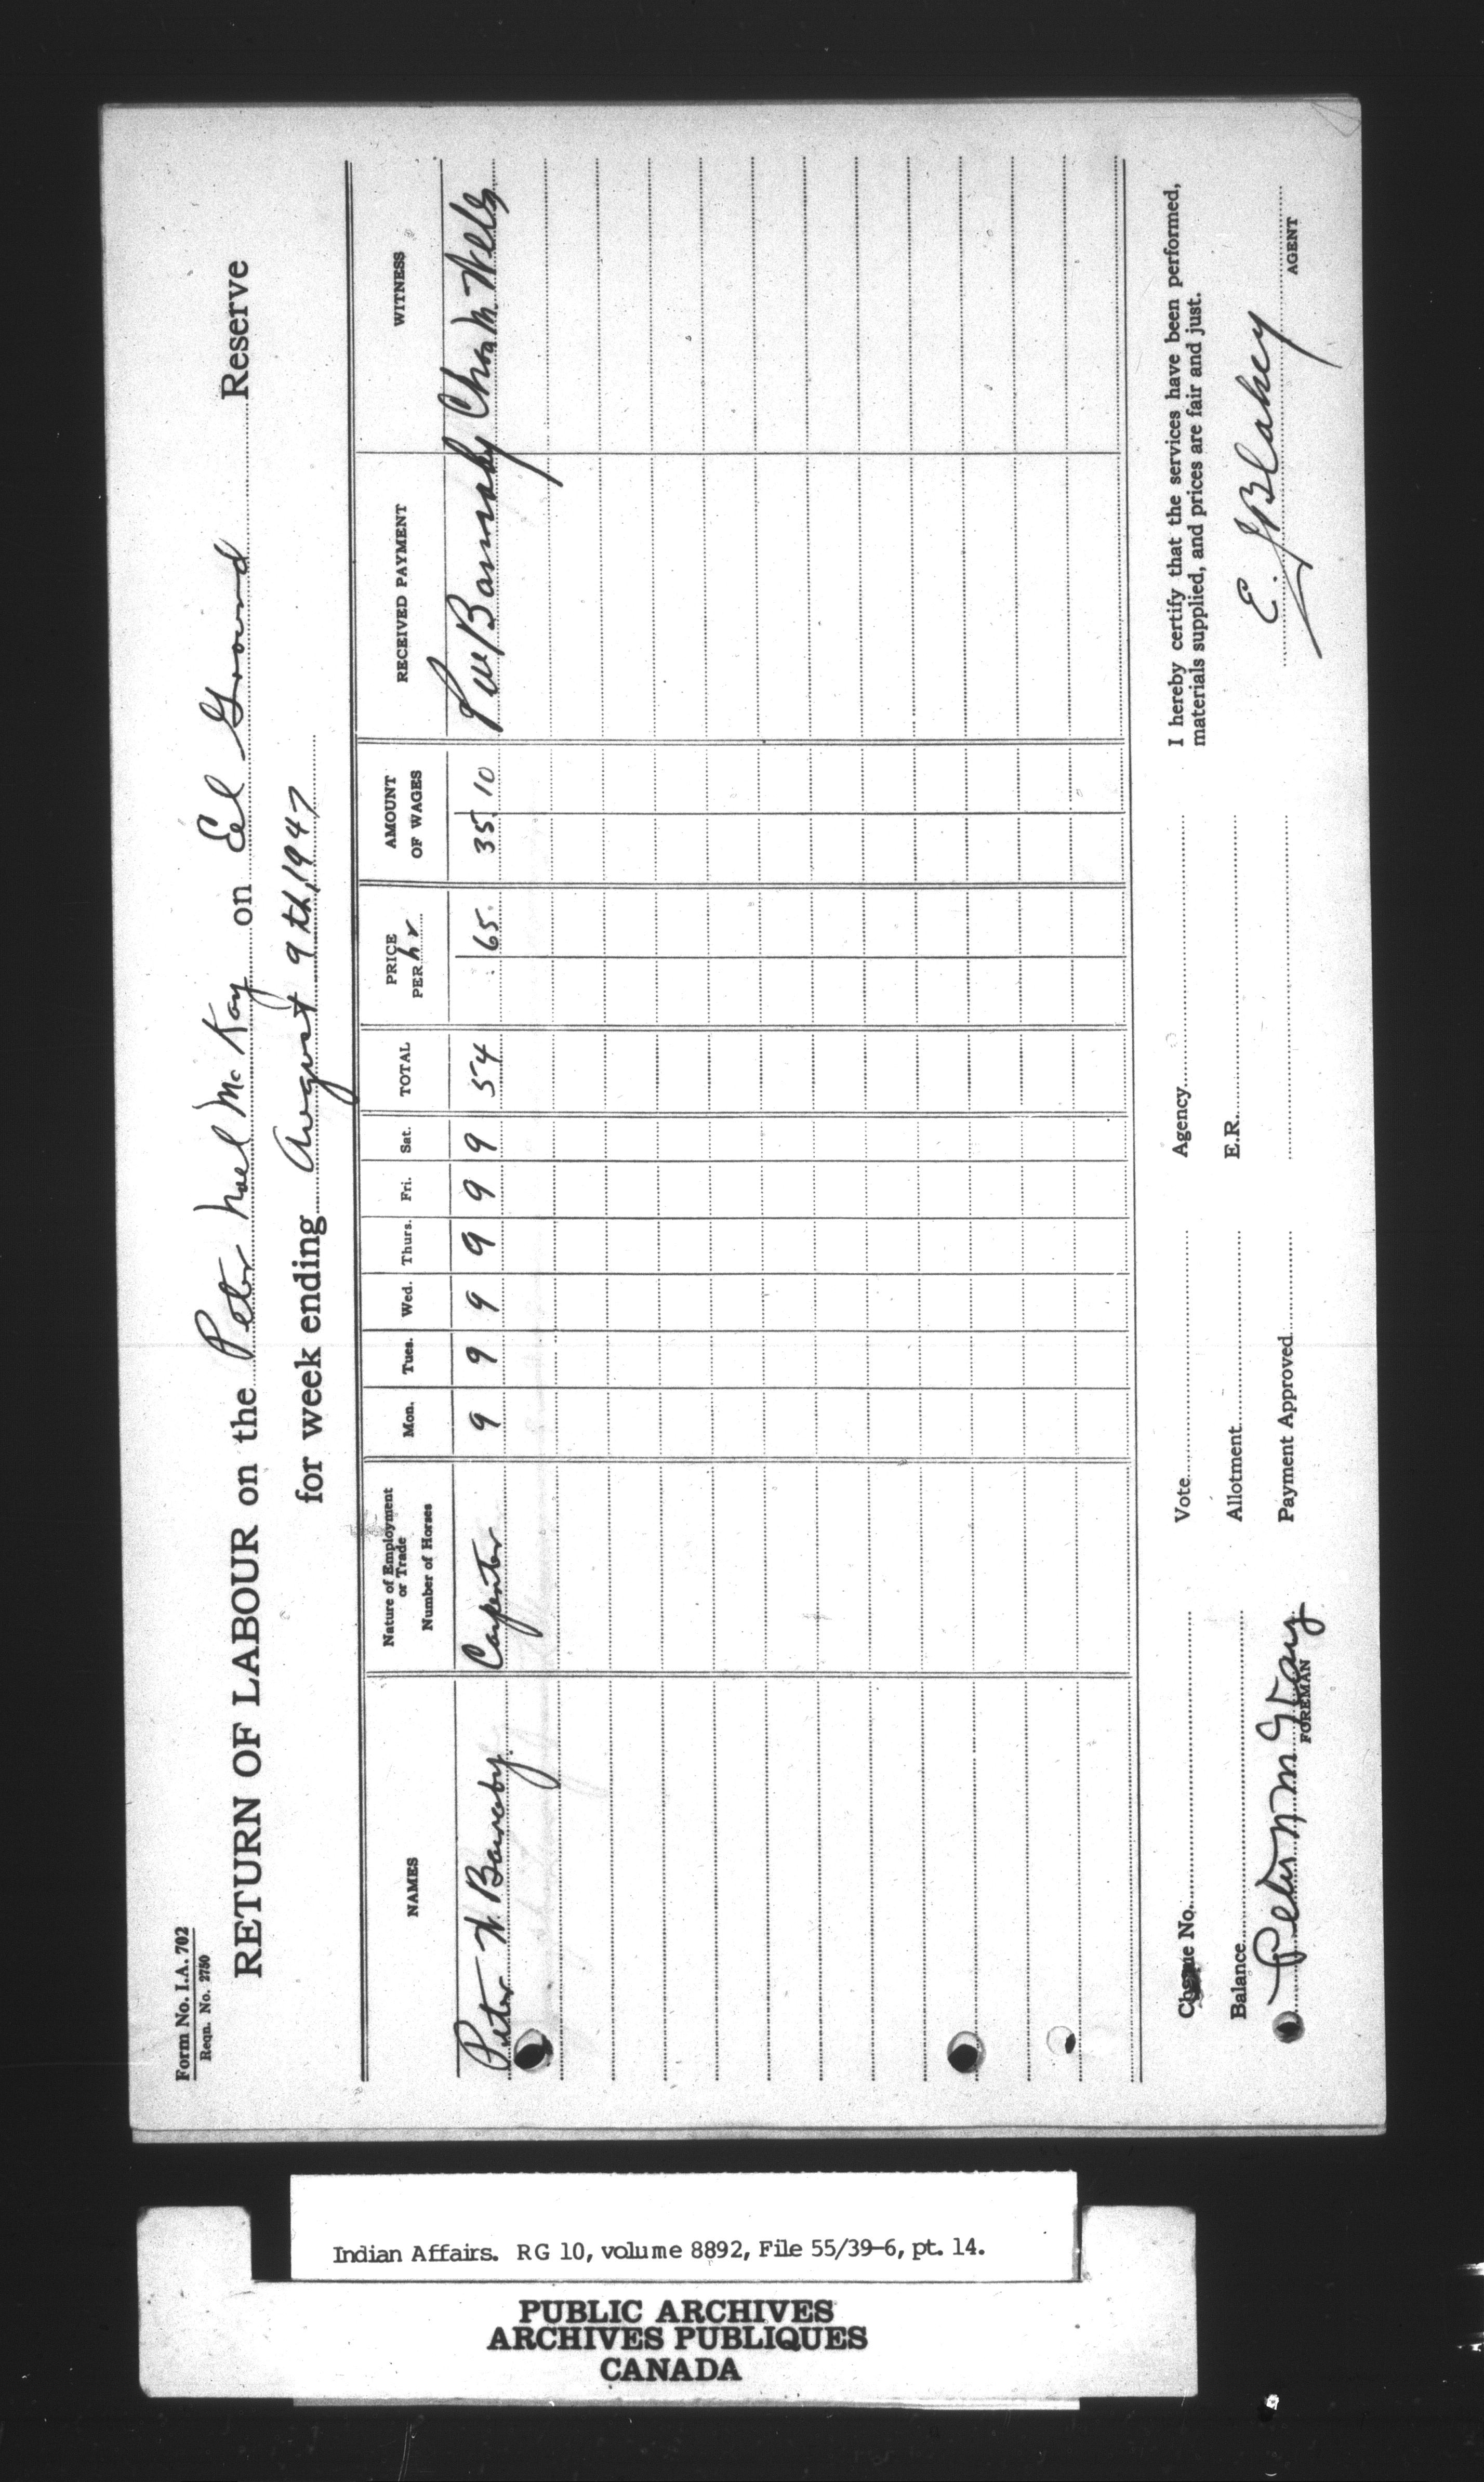 Form No. I.A. 702
Reqn. No. 2750
RETURN OF LABOUR on the Peter Noel McKay on Eel Ground Reserve
for week ending August 9th, 1947
NAMES Nature of Employment or Trade Number of Horses Mon. Tues. Wed. Thurs. Fri. Sat. TOTAL PRICE PER hr AMOUNT OF WAGES RECEIVED PAYMENT WITNESS
Peter W. Barnaby Carpenter 9 9 9 9 9 9 54 .65 35.10 P W Barnaby Chas M Wells
Cheque No. Vote Agency I hereby certify that the services have been performed,
materials supplied, and prices are fair and just.
Balance Allotment E.R.
Peter Payment Approved E. Blakey
FOREMAN AGENT
Indian Affairs. RG 10, volume 8892, File 55/39-6, pt. 14.
PUBLIC ARCHIVES
ARCHIVES PUBLIQUES
CANADA